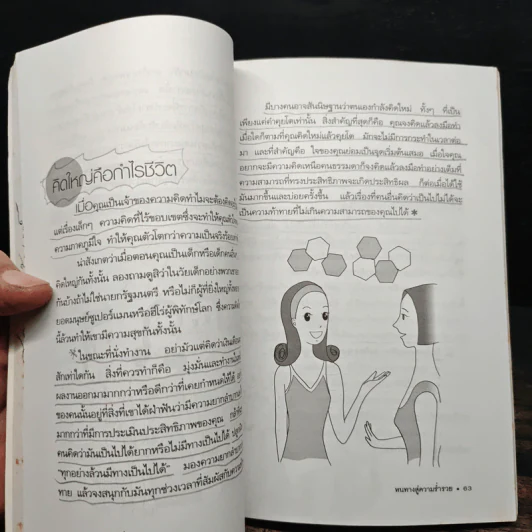 คิดใหญ่คือกำไรชีวิต
เมื่อคุณเป็นเจ้าของความคิดทำไมจะต้อง
แต่เรื่องเล็กๆ ความคิดที่ไร้ขอบเขตซึ่งจะทำให้คุณ
ความภาคภูมิใจ ทำให้คุณตัวโตกว่าความเป็นจริง
น่าสังเกตว่าเมื่อตอนคุณเป็นเด็กหรือเด็กคนอื่น
คิดใหญ่กันทั้งนั้น ลองถามดูสิว่าในวัยเด็กอย่างพวก
กันบ้างถ้าไม่ใช่นายกรัฐมนตรี หรือไม่ก็ผู้ที่ยิ่งใหญ่
ยอดมนุษย์ซูเปอร์แมนหรือฮีโร่ผู้พิทักษ์โลก ซึ่งความคิด
นี้ล้วนทำให้เขามีความสุขกันทั้งนั้น
ในขณะที่นั่งทำงาน อย่ามัวแต่คิดว่าเงินเดือน
สักเท่าใดกัน สิ่งที่ควรทำก็คือ มุ่งมั่นและทำงาน
ผลงานออกมามากกว่าหรือดีกว่าที่เคยกำหนดไว้ให้ได้
ของคนนั้นอยู่ที่สิ่งที่เขาได้ฝ่าฟันว่ามีความยาก
มากกว่าที่มีการประเมินประสิทธิภาพของคุณ
คนคิดว่ามันเป็นไปได้ยากหรือไม่มีทางเป็นไปได้
"ทุกอย่างล้วนมีทางเป็นไปได้" มองความยาก
ทาย แล้วจงสนุกกับมันทุกช่วงเวลาที่สัมผัสกับความ
มีบางคนอาจสันนิษฐานว่าตนเองกำลังคิดใหม่ ทั้งๆ ที่เป็น
เพียงแต่คำคุยโตเท่านั้น สิ่งสำคัญที่สุดก็คือ คุณจงคิดแล้วลงมือทำ
เมื่อใดก็ตามที่คุณคิดใหม่แล้วคุยโต มักจะไม่มีการกระทำในเวลาต่อ
มา และที่สำคัญคือ ใจของคุณย่อมเป็นจุดเริ่มต้นเสมอ เมื่อใจคุณ
อยากจะมีความคิดเหนือคนธรรมดาก็จงคิดแล้วลงมือทำอย่างเต็มที่
ความสามารถที่ทรงประสิทธิภาพจะเกิดประสิทธิผล ก็ต่อเมื่อได้ใช้
มันมากขึ้นและบ่อยครั้งขึ้น แล้วเรื่องที่คนอื่นคิดว่าเป็นไปไม่ได้จะ
เป็นความท้าทายที่ไม่เกินความสามารถของคุณไปได้
หนทางสู่ความร่ำรวย • 63